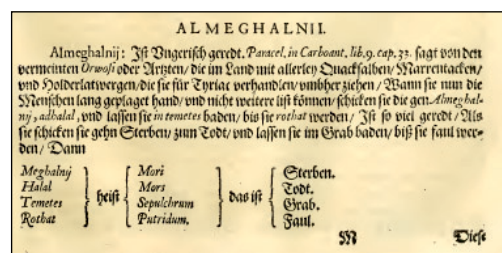 ALMEGHALNII.
Almeghalnij: Jst Vngerisch geredt. Paracel. in Carboant. lib. 9. cap. 33. sagt von den
vermeinten Orwosi oder Artzten/ die im Land mit allerley Quacksalben/ Marrentacken/
vnd Holderlatwergen/ die sie für Tyriac verhandlen/ vmbher ziehen/ Wann sie nun die
Menschen lang geplaget hand/ vnd nicht weitere list können/ schicken sie die gen Almeghal-
nij, adhalal, vnd lassen sie in temetes baden/ bis sie rothat werden/ Jst so viel geredt/ Als
sie schicken sie gehn Sterben/ zum Todt/ vnd lassen sie im Grab baden/ biß sie faul wer-
den/ Dann
Meghalnij Mori Sterben.
Halal Mors Todt.
heist das ist
Temetes Sepulchrum Grab.
Rothat Putridum. Faul.
M Diese